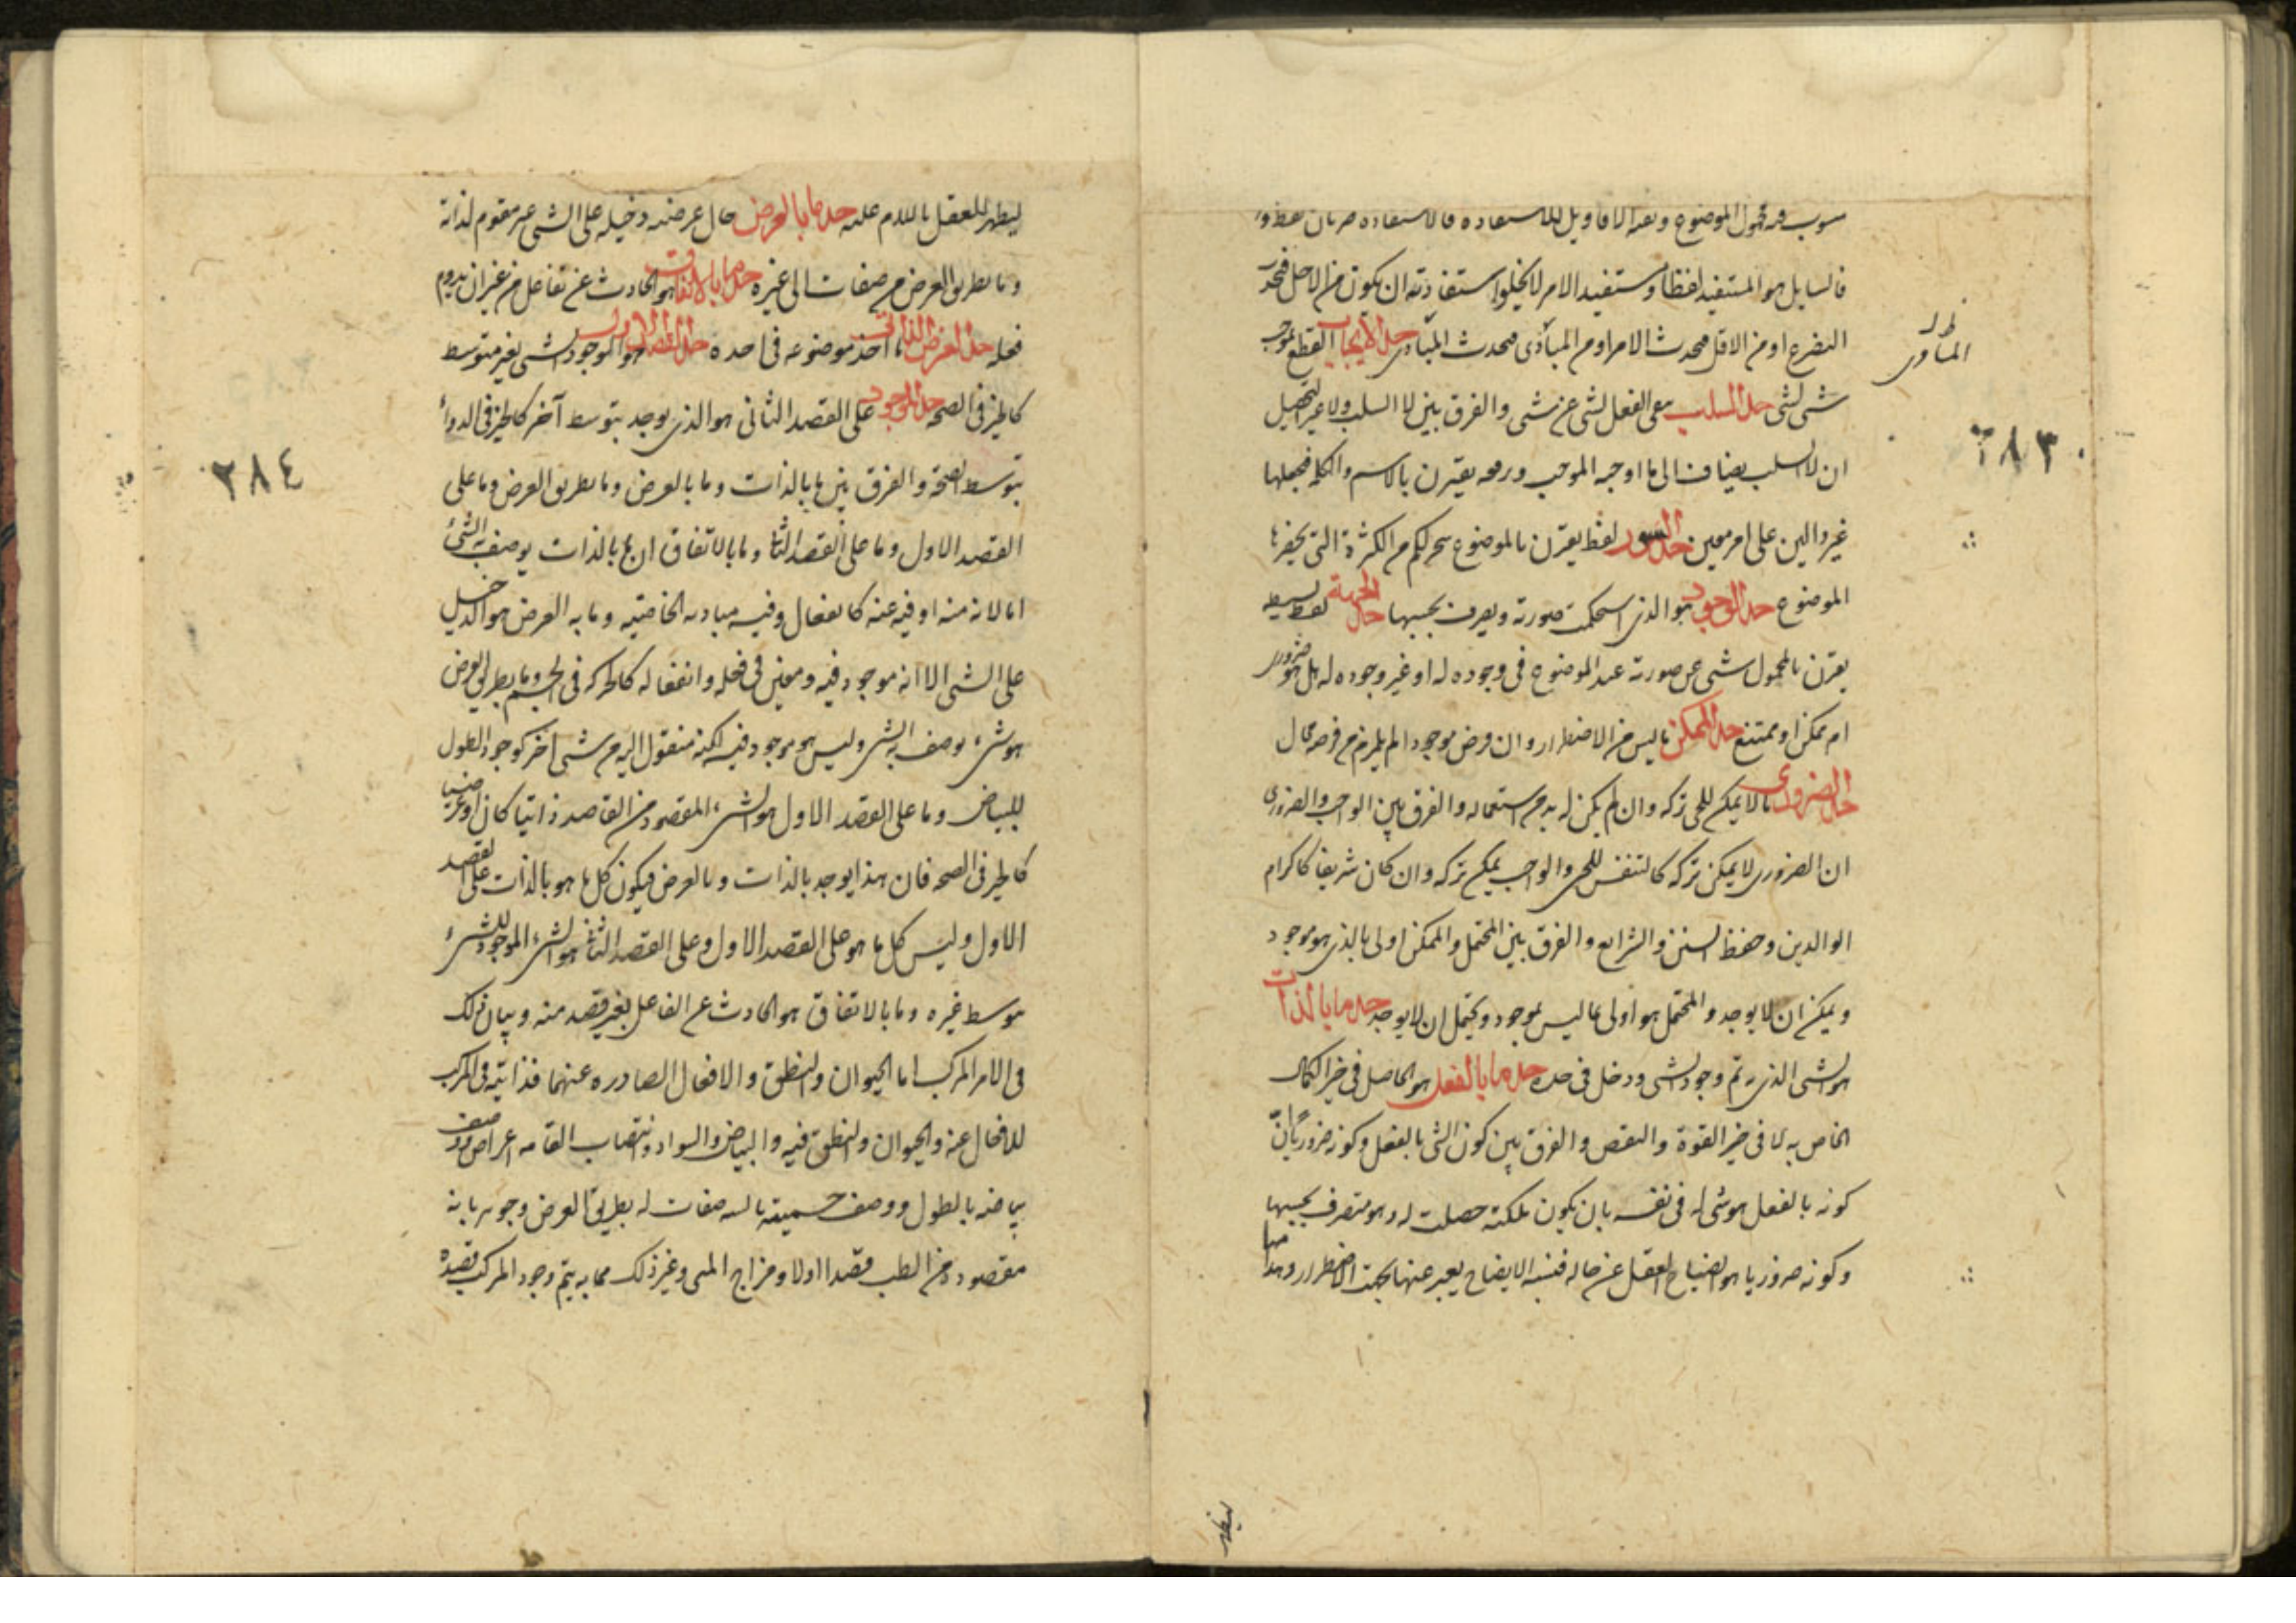 فالسايل هو المستفيد لفظا ومستفيد الامر لا يخلوا استفادته ان يكون من الاجل فتحدث
التضرع او من الاقل فتحدث الامر او من المساوى فتحدث المساوى حد الايجاب القطع بوجب
ظ لـ
المساوى
شى لشى حد السلب الفعل لشى عن شى والفرق بين لا السلب ولا غير التحصيل
٢٨٣
ان لا السلب يضاف الى ما اوجبه الموجب ويقترن بالاسم والكلمه فيجعلها
غير دالين على امر معين حد السور لفظ يقترن بالموضوع الكثرة التى يحضرها
الموضوع حد الوجود هو الذى استحكمت صورته ويصرف بحسبها حد الجهة لفظ بسيط
يقترن بالمحمول عن صورته عند الموضوع فى وجوده له او غير وجوده له هل هو ضرورى
ام ممكن او ممتنع حد الممكن ما ليس من الاضطرار وان فرض موجودا لم يلزم من فرضه محال
حد الضرورى ما لا يمكن للحى تركه وان لم يكن له بد من استعماله والفرق بين الواجب والضرورى
ان الضرورى لا يمكن تركه كالتنفس للحى والواجب يمكن تركه وان كان شريفا كاكرام
الوالدين وحفظ السنن والشرايع والفرق بين المحتمل والممكن اولى بالذى هو موجود
ويمكن ان لا يوجد والمحتمل هو اولى بما ليس بموجود ويحتمل ان لا يوجد حد ما بالذات
هو الشى الذى به تم وجود الشى ودخل فى حده حد ما بالفعل هو الحاصل فى حيز الكمال
الخاص به لا فى حيز القوة والنقص والفرق بين كون الشى بالفعل وكونه ضروريا ان
كونه بالفعل هو شى له فى نفسه بان يكون ملكته حصلت له وهو متصرف بحسبها
وكونه ضروريا هو العقل عن حاله الايضاح يعبر عنها بجهة الاضطرار
ليظهر
ليظهر للعقل حد ما بالعرض حال عرضته دخيله على الشى غير مقوم لذاته
وما بطريق العرض من صفات الى غيره حد ما بالاتفاق هو الحادث عن تفاعل من غير ان يدوم
فعله حد العرض الذاتى ما اخذ موضوعه فى حده حد القصد الاول هو الموجود لشى بغير متوسط
كالخير فى الصحه حد الموجود على القصد الثانى هو الذى يوجد بتوسط آخر كالخير فى الدواء
٢٨٤
بتوسط الصحة والفرق بين ما بالذات وما بالعرض وما بطريق العرض وما على
القصد الاول وما على القصد الثانى وما بالاتفاق ان ما بالذات يوصف به الشئ
اما لانه منه او فيه عنه كانفعال وفيه مباديه الخاصية وما به العرض هو الدخيل
على الشى الا انه موجود فيه ومعين فى فعله وانفعاله كالحركه فى الجسم وما بطريق العرض
هو شىء يوصف به الشى وليس هو موجود فيه لكنه منقول اليه من شى آخر كوجود الطول
للبياض وما على القصد الاول هو الشىء المقصود من القاصد ذاتيا كان او عرضيا
كالخير فى الصحه فان هذا يوجد بالذات وبالعرض فيكون كل ما هو بالذات على القصد
الاول وليس كل ما هو على القصد الاول وعلى القصد الثانى هو الشىء الموجود للشىء
بتوسط غيره وما بالاتفاق هو الحادث عن الفاعل بغير قصد منه وبيان ذلك
فى الامر المركب اما الحيوان والنطق والافعال الصادره عنهما فذاتية فى المركب
للافعال عنه والحيوان والنطق فيه والبياض والسواد وانتصاب القامه اعراض ووصف
بياضه بالطول ووصف صفات له بطريق العرض وجوهر بانه
مقصود من الطب قصدا اولا ومزاج المنى وغير ذلك مما به يتم وجود المركب قصده